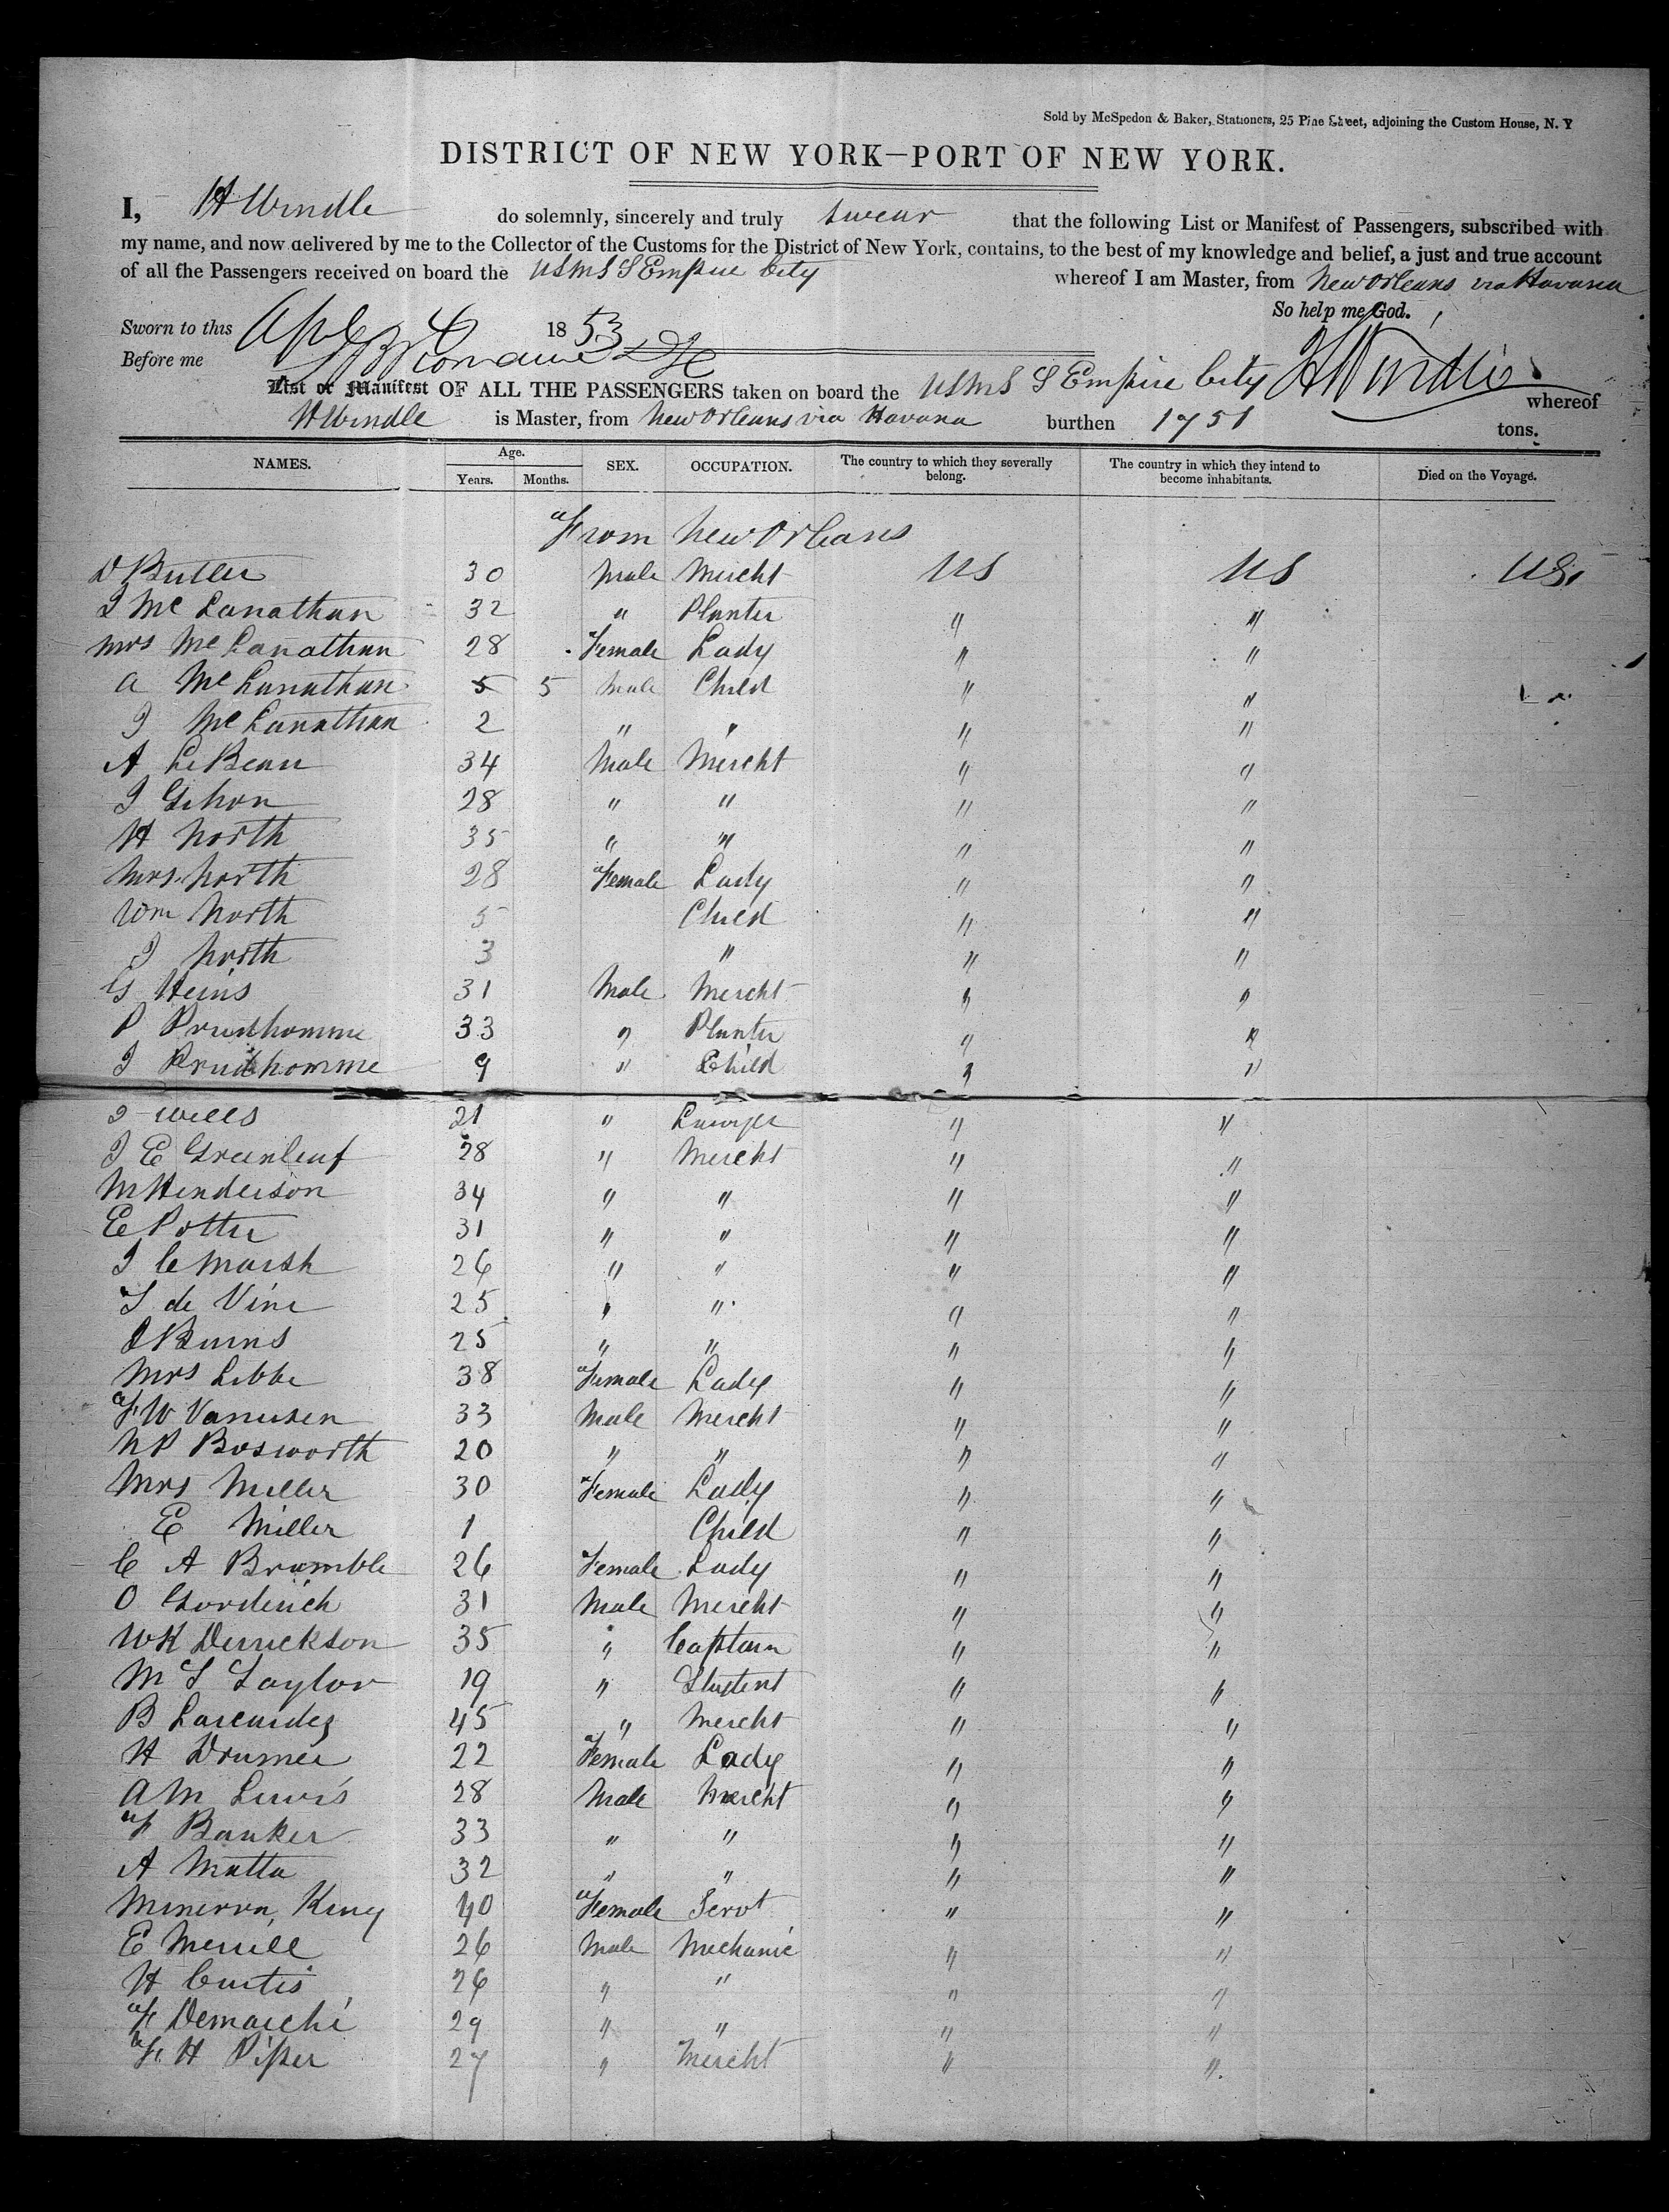 Sold by McSpedon & Baker, Stationers, 25 Pine Street, adjoining the Custom House, N. Y
DISTRICT OF NEW YORK—PORT OF NEW YORK.
I, H Windle do solemnly, sincerely and truly swear that the following List or Manifest of Passengers, subscribed with
my name, and now delivered by me to the Collector of the Customs for the District of New York, contains, to the best of my knowledge and belief, a just and true account
of all the Passengers received on board the USMS S Empire City whereof I am Master, from New Orleans via Havana
So help me God.
Sworn to this Apl 4 1853
Before me
H Windle
List or Manifest OF ALL THE PASSENGERS taken on board the USMS S Empire City whereof
H Windle is Master, from New Orleans via Havana burthen 1751 tons.
NAMES. Age. Years. Months. SEX. OCCUPATION. The country to which they severally belong. The country in which they intend to become inhabitants. Died on the Voyage.
From New Orleans
D Butler 30 Male Mercht US US US
J Mc Lanathan 32 " Planter " "
Mrs Mc Lanathan 28 Female Lady " "
A Mc Lanathan 5 5 Male Child " "
J Mc Lanathan 2 " " " "
A LeBeau 34 Male Mercht " "
J Gihon 28 " " " "
H North 35 " " " "
Mrs North 28 Female Lady " "
Wm North 5 Child " "
J North 3 " " "
G Heins 31 Male Mercht " "
P Prudhomme 33 " Planter " "
J Prudhomme 9 " Child " "
J Wells 21 " Lawyer " "
J E Greenleaf 28 " Mercht " "
M Henderson 34 " " " "
E Potter 31 " " " "
J C Marsh 26 " " " "
S de Vine 25 " " " "
J Burns 25 " " " "
Mrs Libbe 38 Female Lady " "
F W Vanusen 33 Male Mercht " "
N P Bosworth 20 " " " "
Mrs Miller 30 Female Lady " "
E Miller 1 Child " "
C A Bramble 26 Female Lady " "
O 31 Male Mercht " "
W H Derrickson 35 " Captain " "
M S Taylor 19 " Student " "
B 45 " Mercht " "
H Drumer 22 Female Lady " "
A M Lewis 28 Male Mercht " "
F Banker 33 " " " "
A Matta 32 " " " "
Minerva King 40 Female Servt " "
E Merrill 26 Male Mechanic " "
H Curtis 26 " " " "
F Demarchi 29 " " " "
F. H Piper 27 " Mercht " "